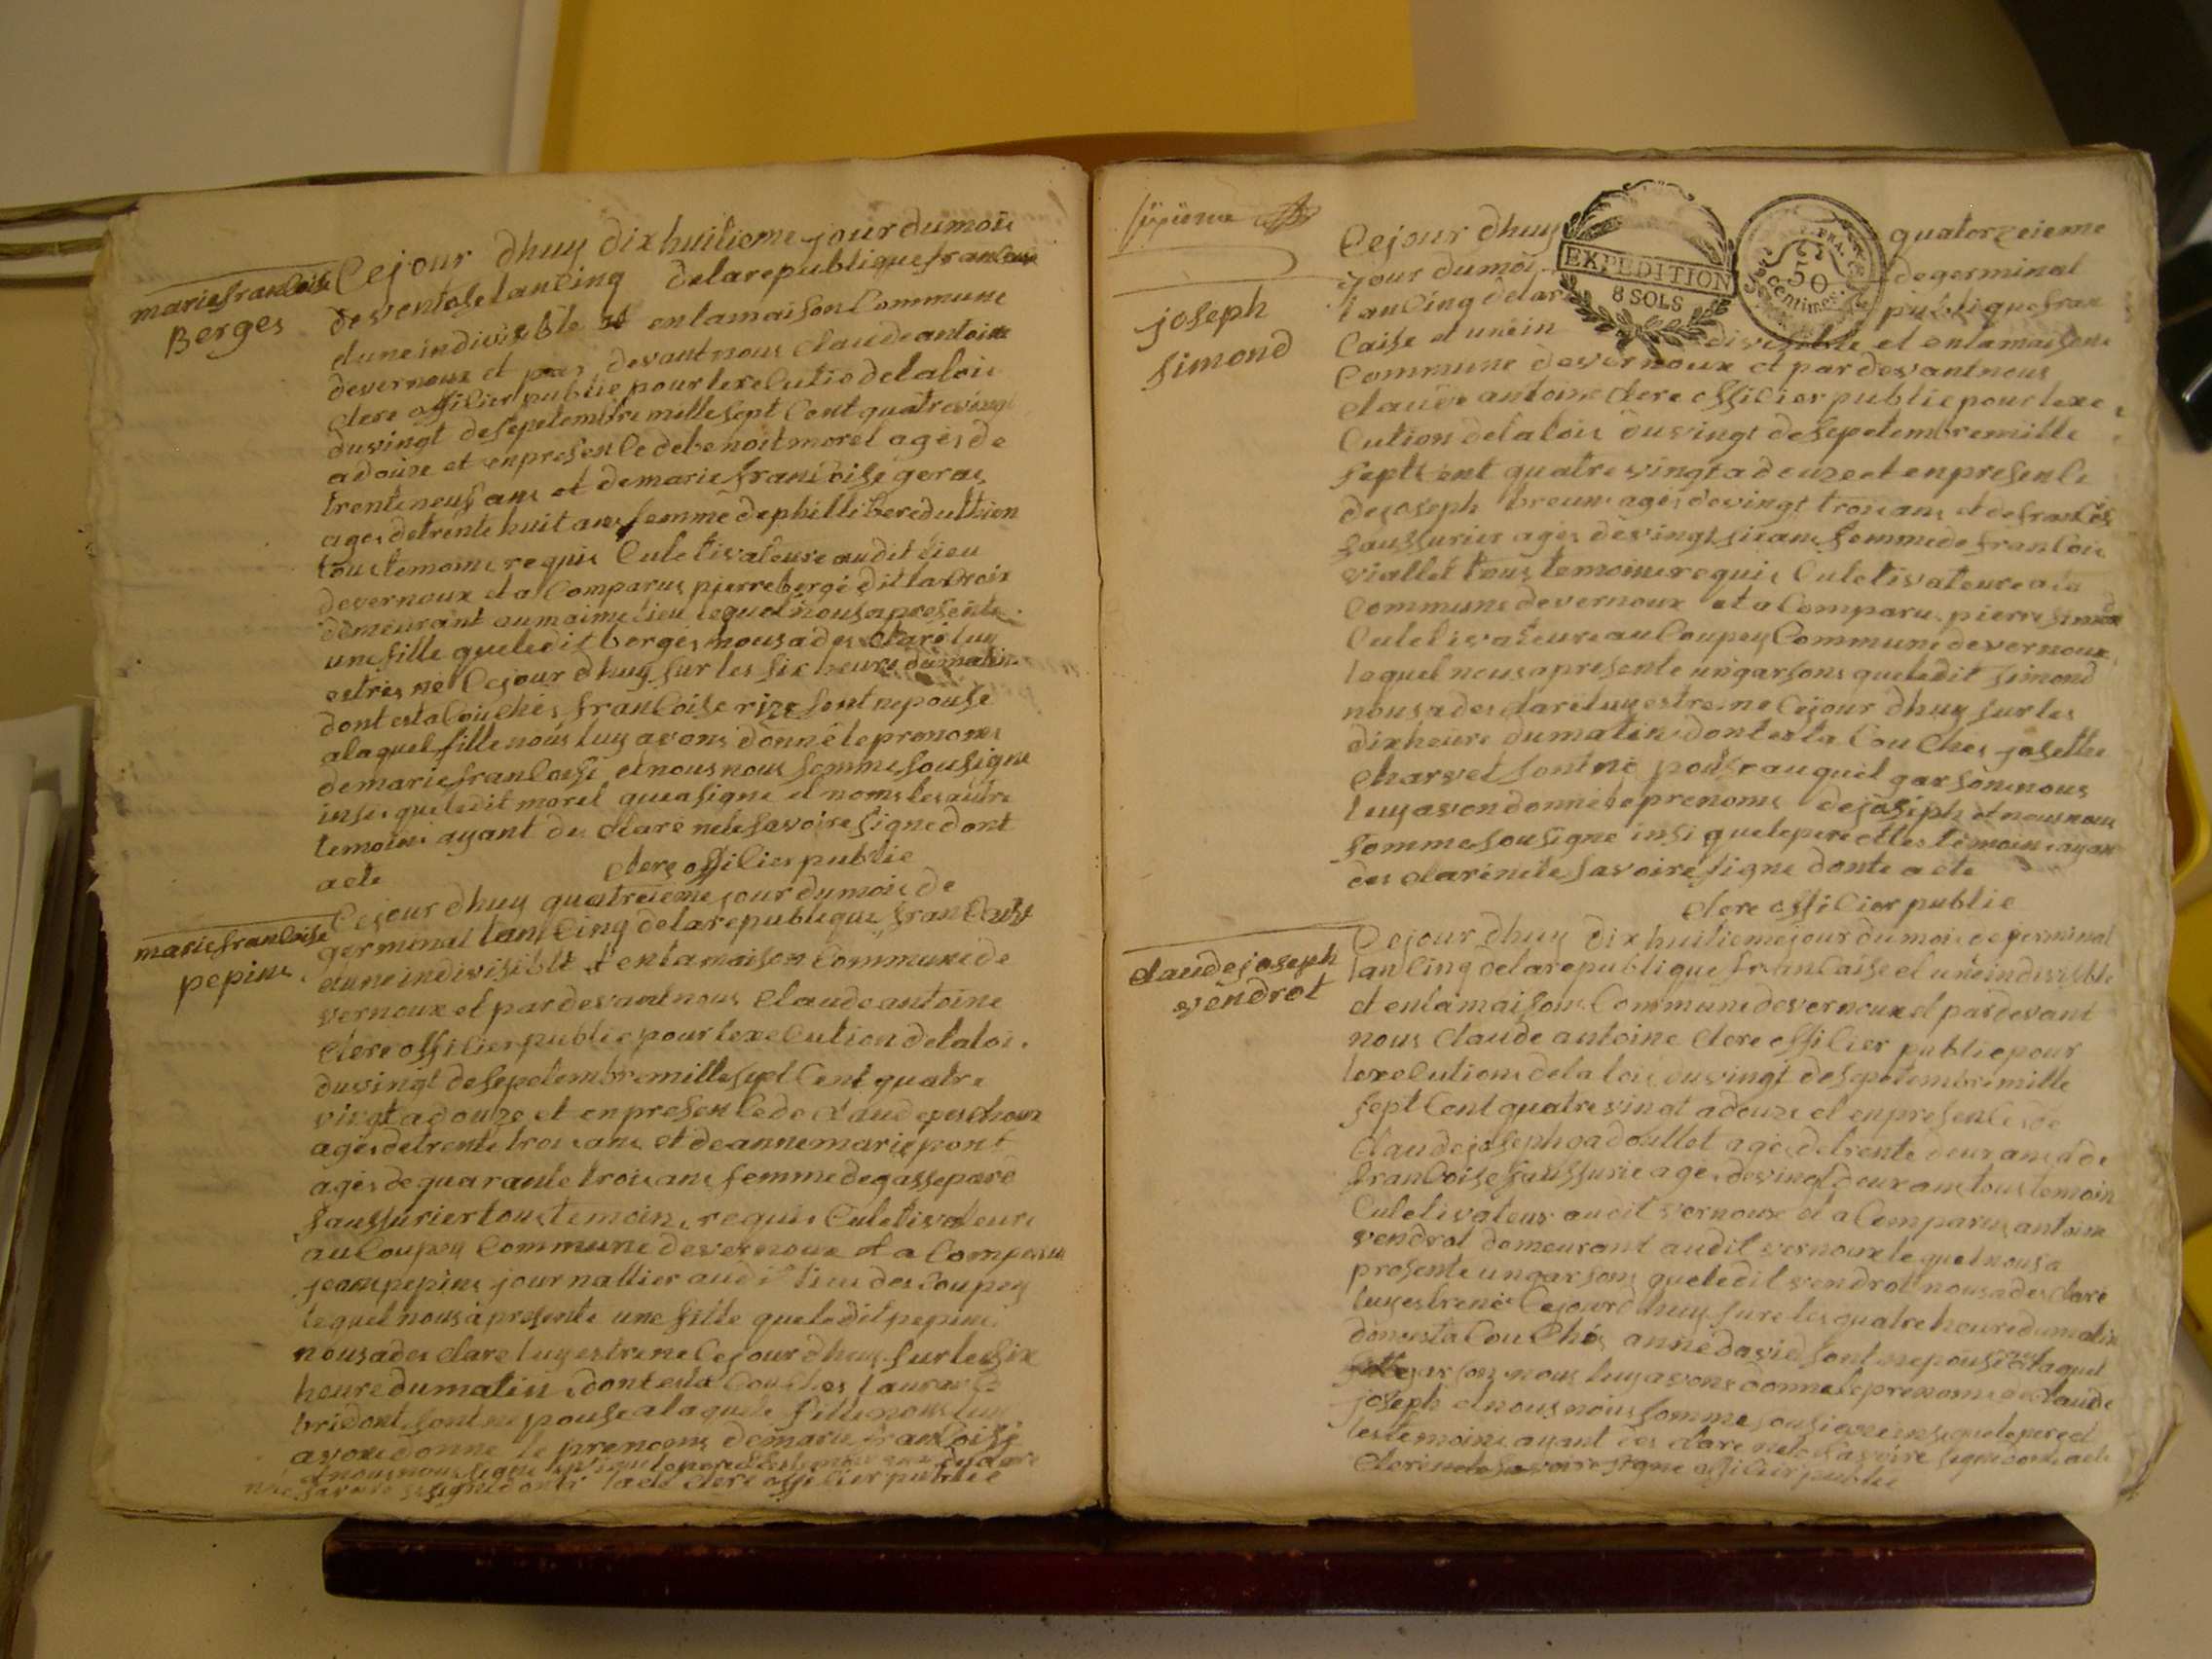 marie francoise
Berges
Cejour dhuy dix huitieme jour du mois
de ventose lan Cinq de la republique francaise
et une indivisible et en la maison Commune
de vernoux et par devant nous Claude antoine
Clere offilier public pour lexelutio de la lois
du vingt de sepetembre mille sept Cent quatre vingt
a douze et en presenle de benoit morel ages de
trente neuf ans et de marie francoise geras
ages de trente huit ans femme de phillibere duthion
tous temoins requis Culetivateure audit lieu
de vernoux et a Comparus pierre berge dit la Croix
demeurant au maime lieu lequel nous a presente
une fille que ledit berges nous a des clare luy
estres ne Cejour dhuy sur les six heure du matin
dont est a Couches francoise rize sont nepouse
a laquel fille nous luy avons donne le prenoms
de marie francoise et nous nous somme sousigne
insi que ledit morel que a signe et noms les autre
temoins ayant des clare nele savoire signe dont
acte
Clere offilier public
marie francoise
pepins
Cejour dhuy quatreieme jour du mois de
germinal lan Cinq de la republique francaise
et une indivisible et en la maison Commune de
vernoux et par devant nous Claude antoine
Clere offilier public pour lexelution de la loi
du vingt de sepetembre mille sept Cent quatre
vingt a douze et en presenle de Claude
ages de trente trois ans et de anne marie pont
ages de quarante trois ans femme de gassepare
saussurier tous temoins requis Culetivateure
au Coupey Commune de vernoux et a Comparu
jean pepins journallier audit lieu des Coupey
lequel nous a presente une fille que ledit pepins
nous a des clare luy estre ne Cejour dhuy sur les six
heure du matin dont est a Couches
bridont sont nepouse a laquele fille nous luy
avons donne le prenoms de marie francoise
et nous nous signe insi que le pere
savoire signe dont acte Clere offilier publie
joseph
simond
Cejour dhuy quatorzeieme
jour du mois de germinal
EXPEDITION
8 SOLS
50
Centimes
lan Cinq de la republique fran
caise et une indivisible et en la maisons
Commune de vernoux et par devant nous
Claude antoine Clere offilier public pour lexe
lution de la lois du vingt de sepetembre mille
sept Cent quatre vingt a douze et en presenle
de joseph breun ages de vingt trois ans et de francoise
saussurier ages de vingt six ans femme de francois
viallet tous temoins requis Culetivateure a la
Commune de vernoux et a Comparu pierre simond
Culetivateure au Coupey Commune de vernoux
lequel nous a presente un garsons que ledit simond
nous a des clare luy estre ne Cejour dhuy sur les
dix heure du matin dont est a Couches josette
Charvet sont ne pouse auquel garsons nous
luy avon donne le prenoms de joseph et nous nous
somme sousigne insi que le pere et les temoins ayan
des clare nele savoire signe donte acte
Clere offilier publie
Claude joseph
vendrot
Cejour dhuy dix huitieme jour du mois de germinal
lan Cinq de la republique francaise et une indivisible
et en la maisons Commune de vernoux et par devant
nous Claude antoine Clere offilier public pour
lexelutions de la lois du vingt de sepetembre mille
sept Cent quatre vingt a douze et en presenle de
Claude joseph gadoullet ages de trente deux ans et de
francoise saussurie ages de vingt deux ans tous temoin
Culetivateur audit vernoux et a Comparus antoine
vendrot demeurant audit vernoux lequel nous a
presente un garsons que ledit vendrot nous a des clare
luy estre ne Cejourdhuy sure les quatre heure du matin
dont est a Couches anne david sont nepouse auquel
garson nous luy avons donne le prenoms de Claude
joseph et nous nous somme sousigne insi que le pere et
les temoins ayant des clare nele savoire signe donte acte
Clere nele savoire signe offilier publie